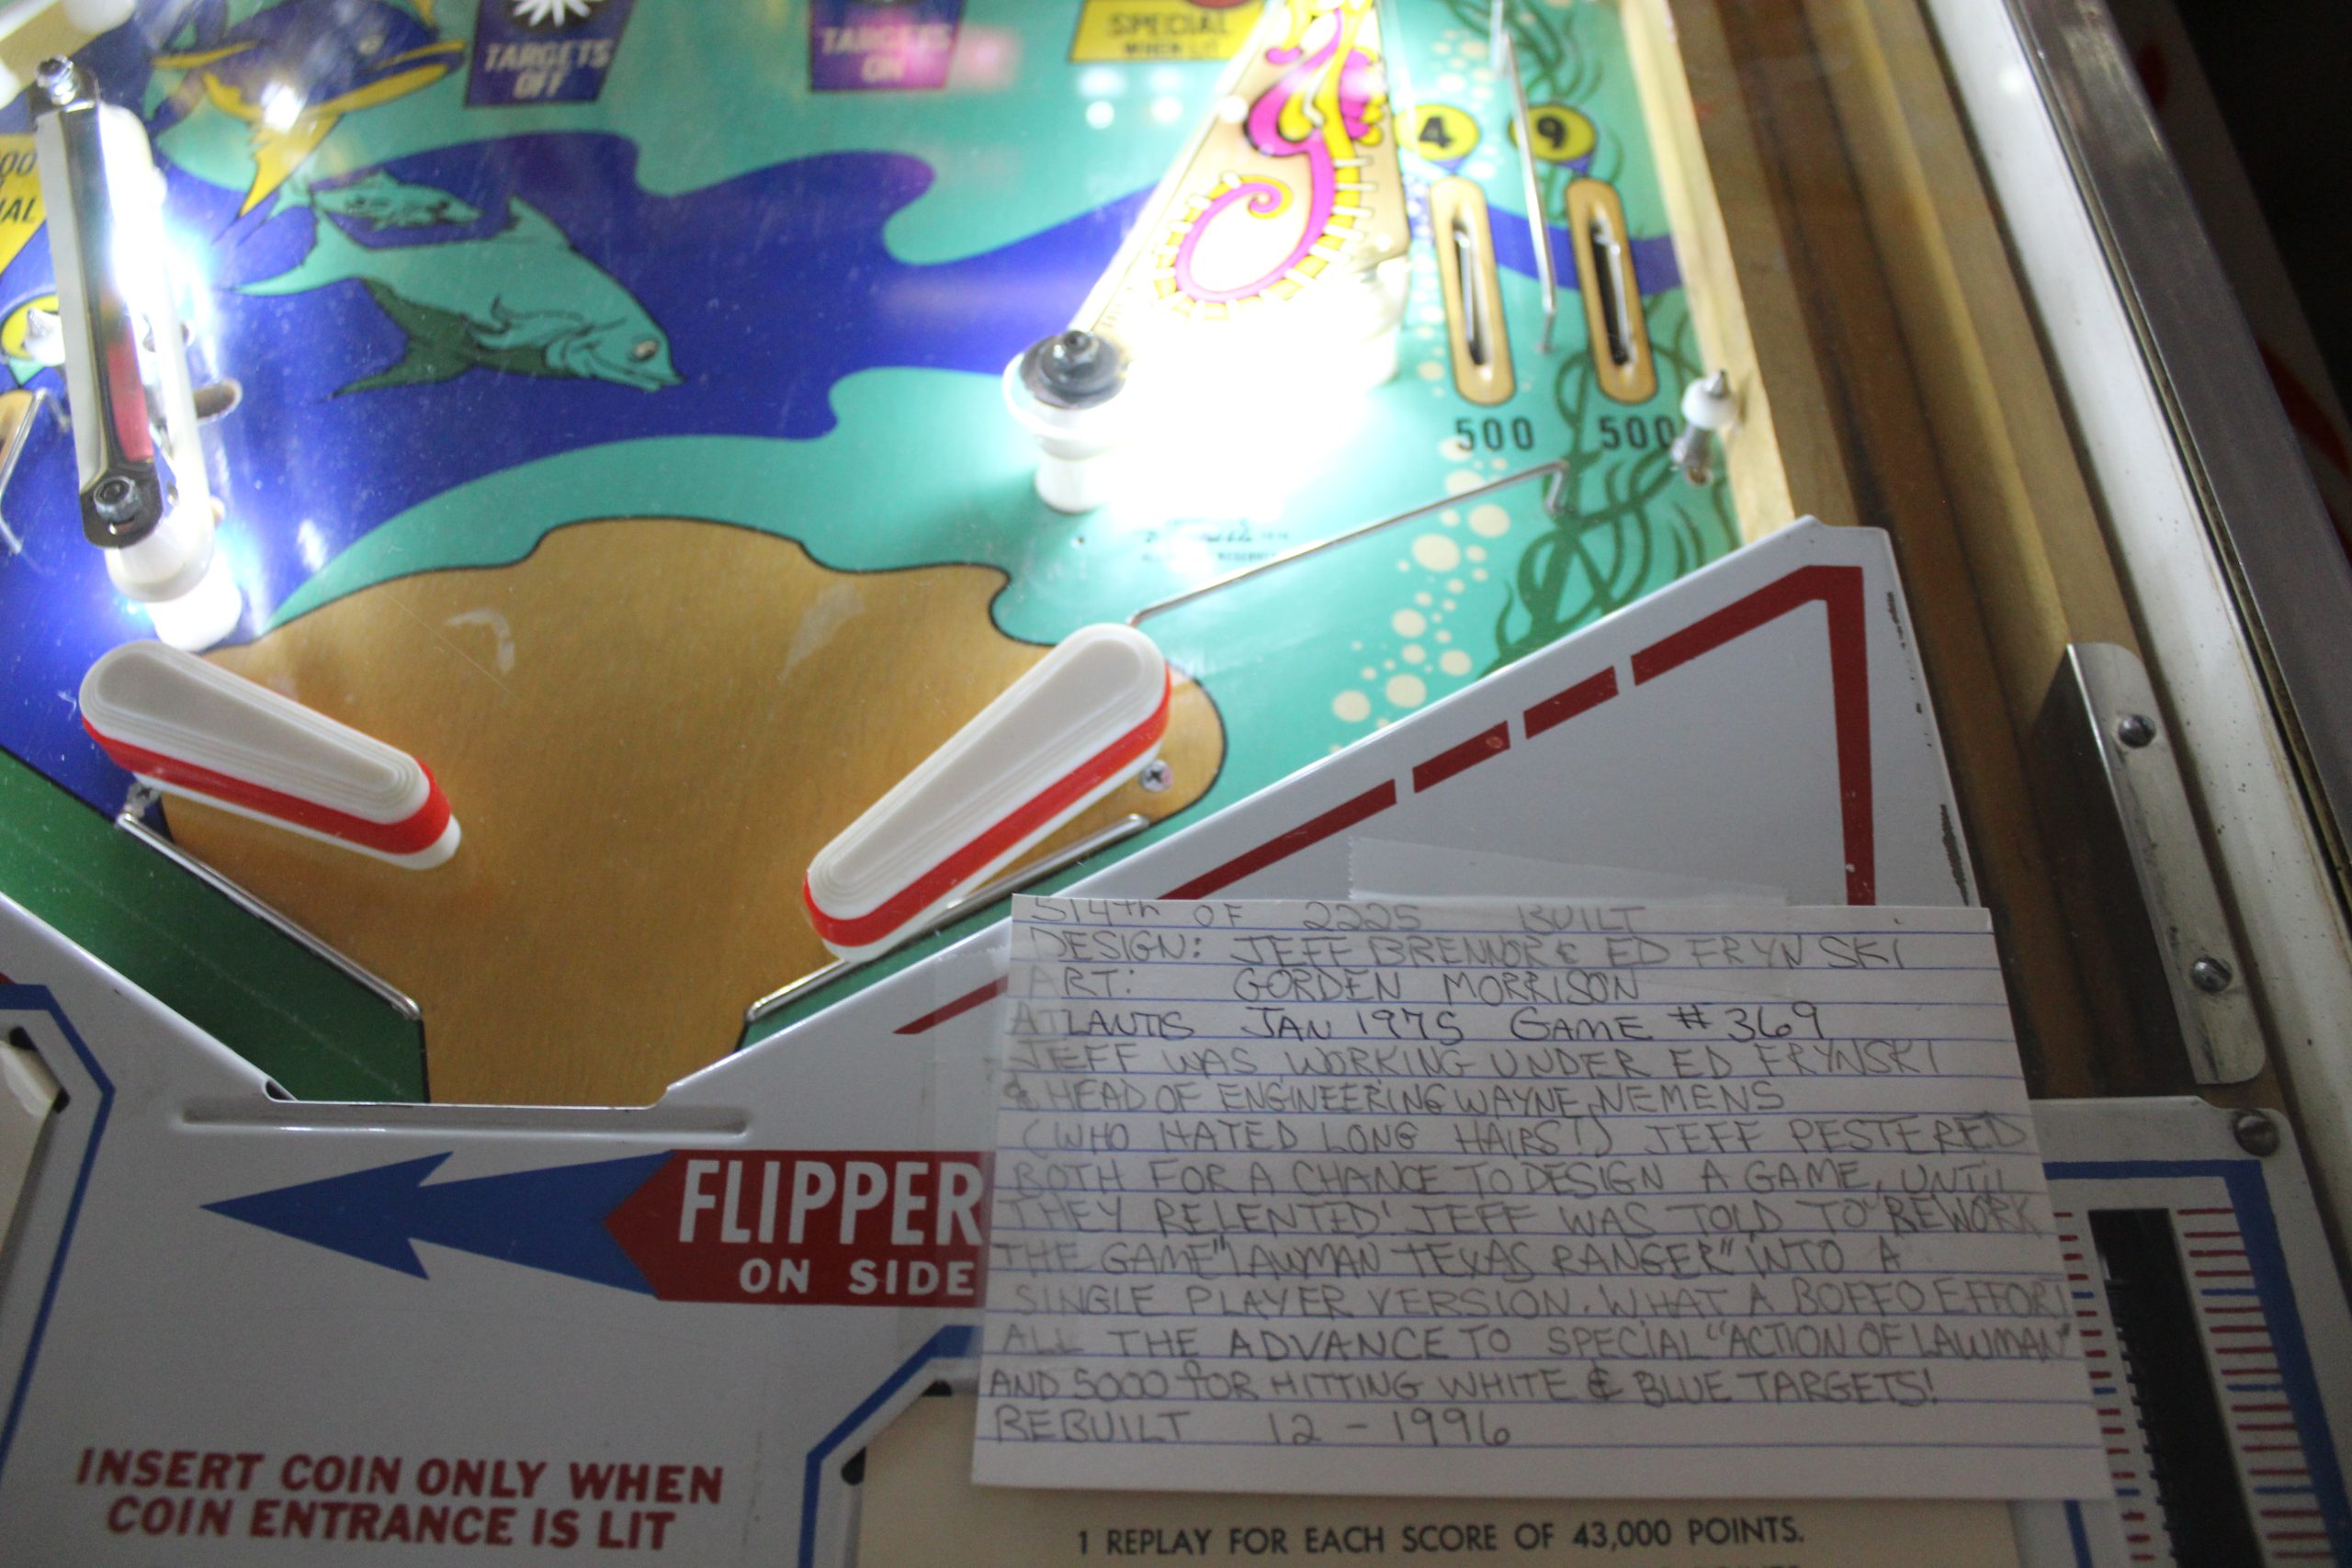 TARGETS
OFF
TARGETS
ON
SPECIAL
WHEN LIT
4
9
500
500
514th OF 2225 BUILT
DESIGN: JEFF BRENNOR & ED FRYNSKI
ART: GORDEN MORRISON
ATLANTIS JAN 1975 GAME #369
JEFF WAS WORKING UNDER ED FRYNSKI
& HEAD OF ENGINEERING WAYNE NEMENS
(WHO HATED LONG HAIRS!) JEFF PESTERED
BOTH FOR A CHANCE TO DESIGN A GAME, UNTIL
THEY RELENTED! JEFF WAS TOLD TO REWORK
THE GAME "LAWMAN TEXAS RANGER" INTO A
SINGLE PLAYER VERSION. WHAT A BOFFO EFFORT
ALL THE ADVANCE TO SPECIAL "ACTION OF LAWMAN"
AND 5000 FOR HITTING WHITE & BLUE TARGETS!
REBUILT 12-1996
FLIPPER
ON SIDE
INSERT COIN ONLY WHEN
COIN ENTRANCE IS LIT
1 REPLAY FOR EACH SCORE OF 43,000 POINTS.